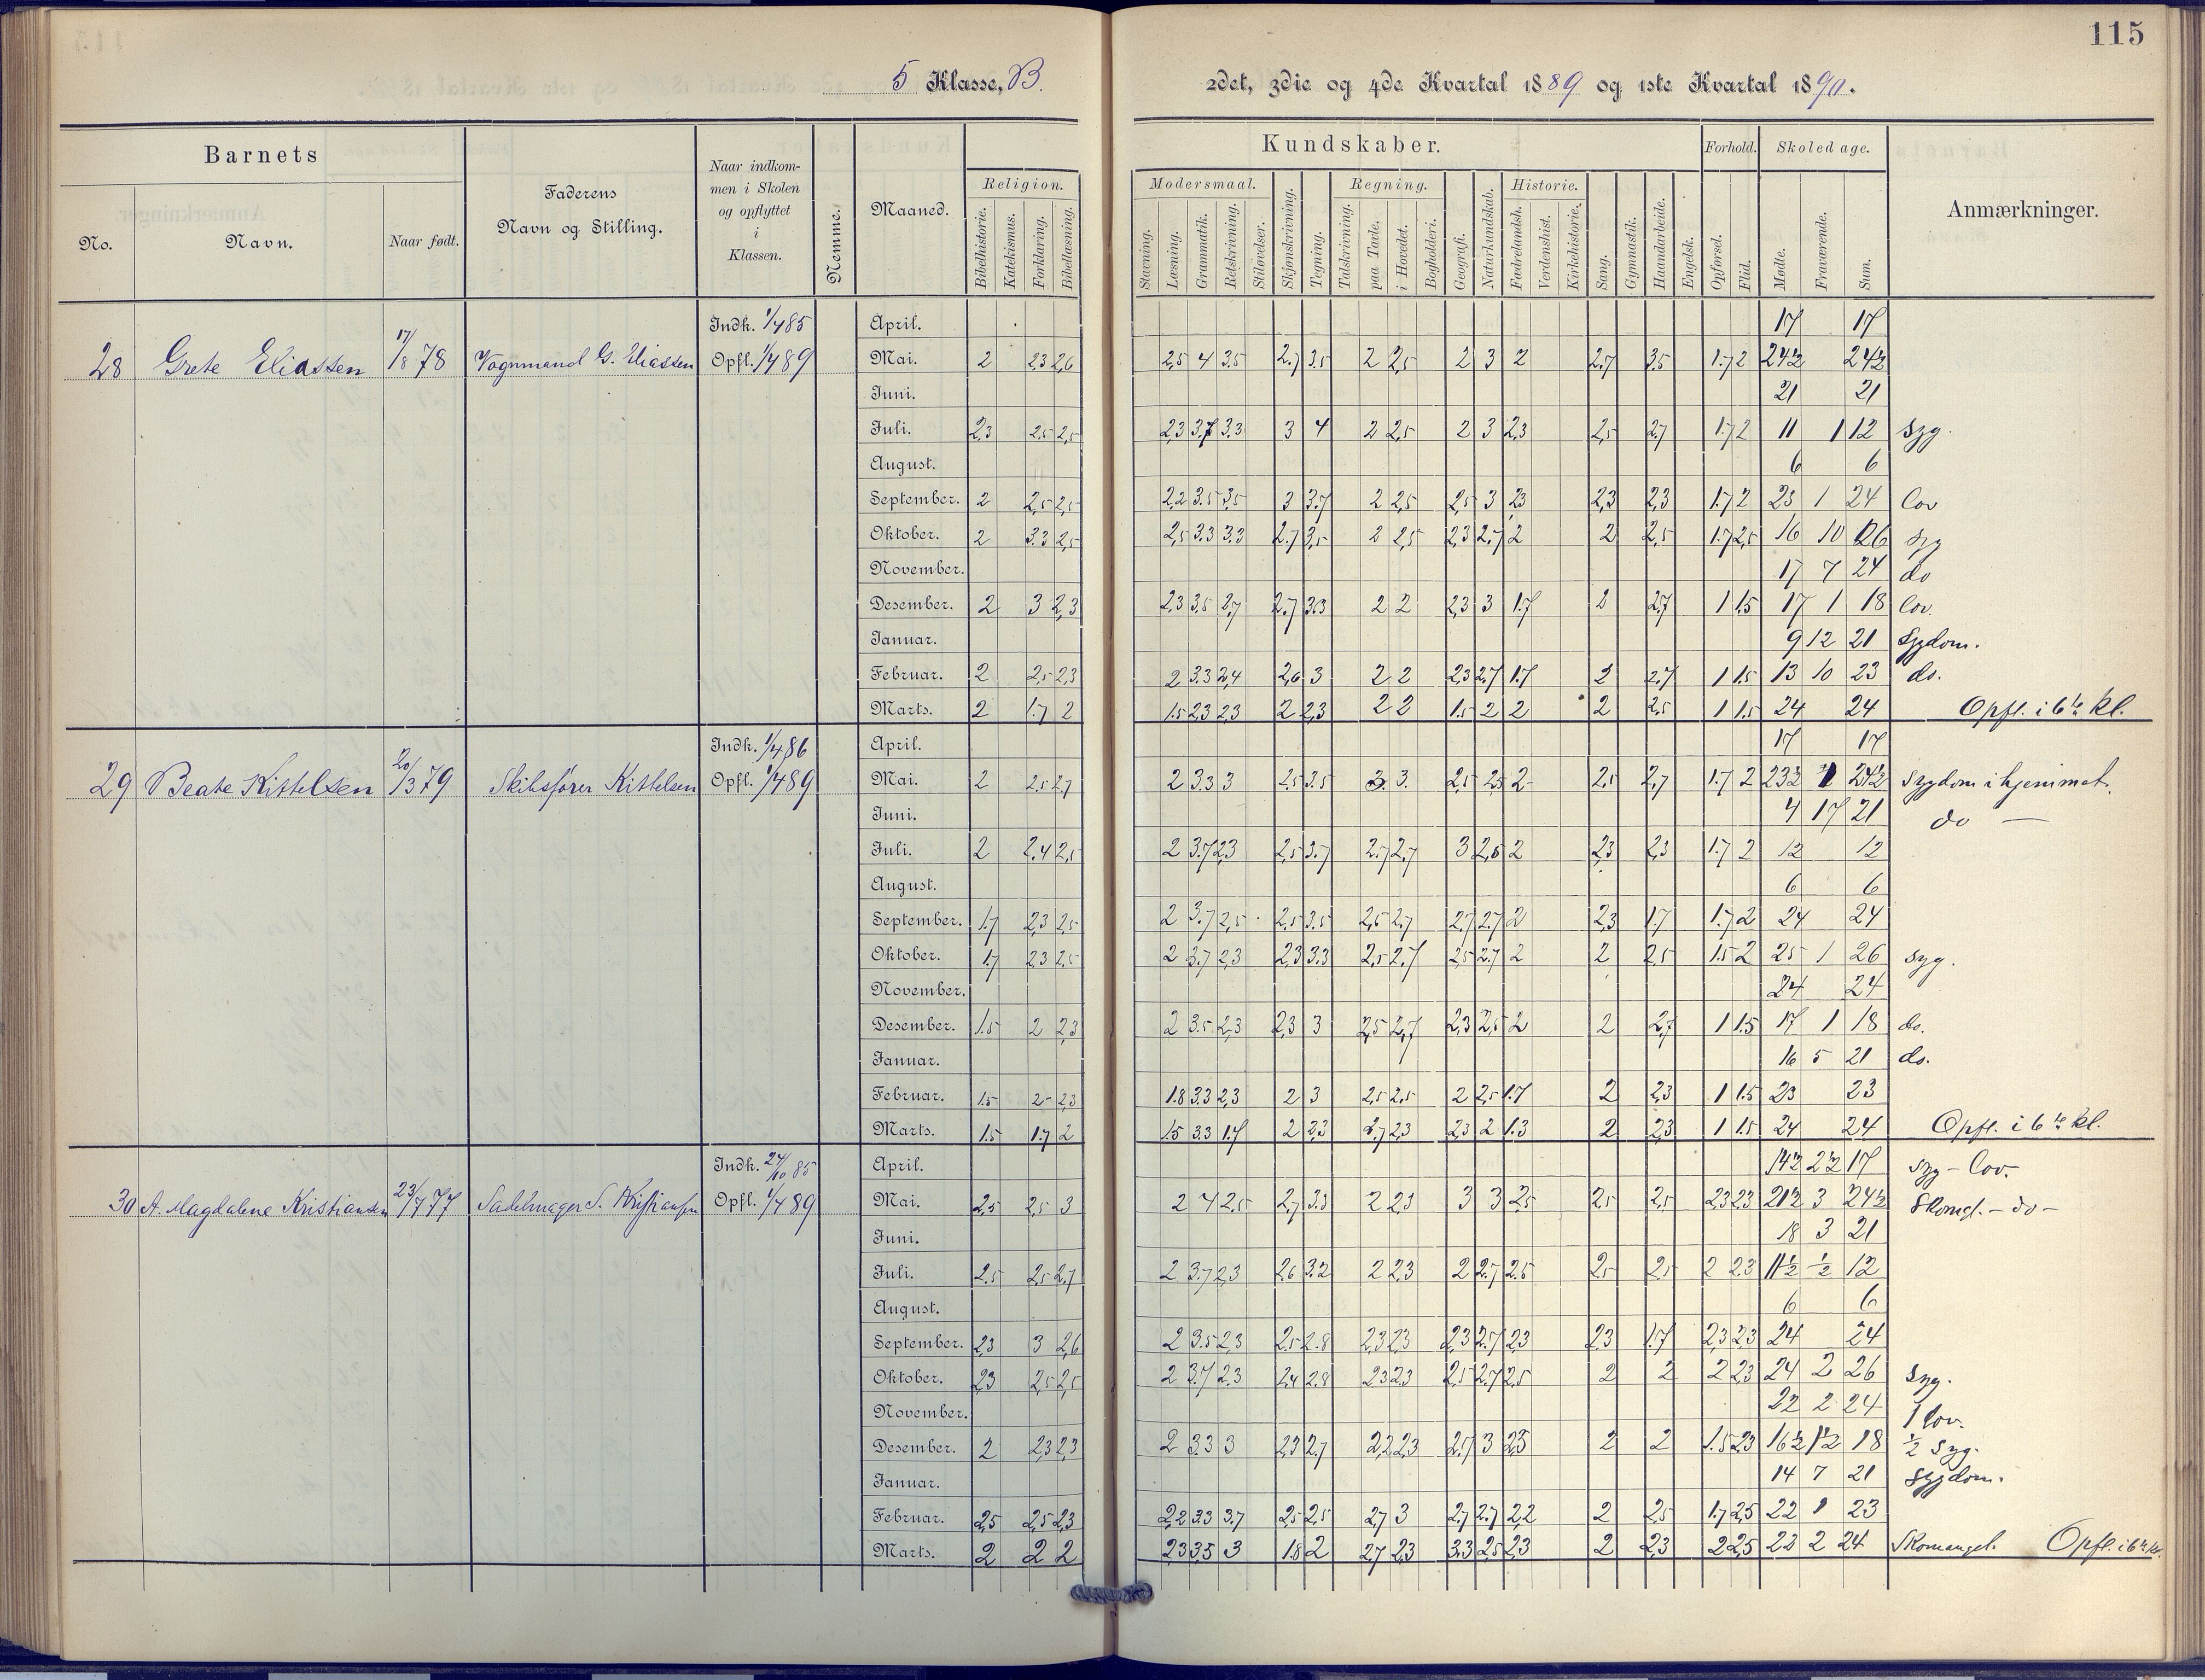 115
5 Klasse, B.
2det, 3die og 4de Kvartal 1889 og 1ste Kvartal 1890.
Barnets
No.
Navn.
Naar født.
Faderens
Navn og Stilling.
Naar indkom-
men i Skolen
og opflyttet
i
Klassen.
Nemme.
Maaned.
Kundskaber.
Religion.
Bibelhistorie.
Katekismus.
Forklaring.
Bibellæsning.
Modersmaal.
Stavning.
Læsning.
Grammatik.
Retskrivning.
Stiløvelser.
Skjønskrivning.
Tegning.
Regning.
Talskrivning.
paa Tavle.
i Hovedet.
Bogholderi.
Geografi.
Naturkundskab.
Historie.
Fædrelandsh.
Verdenshist.
Kirkehistorie.
Sang.
Gymnastik.
Haandarbeide.
Engelsk.
Forhold.
Opførsel.
Flid.
Skoledage.
Mødte.
Fraværende.
Sum.
Anmærkninger.
28 Grete Eliassen 17/8 78 Vognmand G. Eliassen Indk. 1/4 85 Opfl. 1/4 89
April. 17 17
Mai. 2 2,3 2,6 2,5 4 3.5 2.7 3.5 2 2,5 2 3 2 2,7 3.5 1.7 2 24½ 24½
Juni. 21 21
Juli. 2,3 2,5 2,5 2,3 3.7 3.3 3 4 2 2,5 2 3 2,3 2,5 2,7 1.7 2 11 1 12 Syg.
August. 6 6
September. 2 2,5 2,5 2,2 3.5 3,5 3 3.7 2 2,5 2,5 3 2,3 2,3 2,3 1.7 2 23 1 24 Lov
Oktober. 2 3.3 2,5 2,5 3.3 3.3 2.7 3,5 2 2,5 2,3 2.7 2 2 2,5 1.7 2,5 16 10 26 Syg
November. 17 7 24 do
Desember. 2 3 2,3 2,3 3,5 2,7 2.7 3.3 2 2 2,3 3 1.7 2 2,7 1 1.5 17 1 18 Lov.
Januar. 9 12 21 Sygdom.
Februar. 2 2,5 2,3 2 3.3 2,4 2,6 3 2 2 2,3 2.7 1.7 2 2.7 1 1.5 13 10 23 do.
Marts. 2 1.7 2 1.5 2,3 2,3 2 2,3 2 2 1.5 2 2 2 2,5 1 1.5 24 24 Opfl. i 6te kl.
29 Beate Kittelsen 20/3 79 Skibsfører Kittelsen Indk. 1/4 86 Opfl. 1/4 89
April. 17 17
Mai. 2 2,5 2,7 2 3.3 3 2,5 3.5 3. 3. 2,5 2,5 2 2,5 2,7 1.7 2 23½ 1 24½ Sygdom i hjemmet.
Juni. 4 17 21 do —
Juli. 2 2,4 2,5 2 3.7 2,3 2,5 3.7 2.7 2,7 3 2,5 2 2,3 2,3 1.7 2 12 12
August. 6 6
September. 1.7 2,3 2,5 2 3.7 2,5 2,5 3.5 2,5 2,7 2,7 2.7 2 2,3 1.7 1.7 2 24 24
Oktober. 1.7 2,3 2,5 2 3.7 2,3 2,3 3.3 2,5 2,7 2,5 2.7 2 2 2,5 1.5 2 25 1 26 Syg.
November. 24 24
Desember. 1.5 2 2,3 2 3.5 2,3 2,3 3 2,5 2,7 2,3 2,5 2 2 2,7 1 1.5 17 1 18 do.
Januar. 16 5 21 do.
Februar. 1.5 2 2,3 1.8 3.3 2,3 2 3 2,5 2,5 2 2,5 1.7 2 2,3 1 1.5 23 23
Marts. 1.5 1.7 2 1.5 3.3 1.7 2 2,3 2,3 2,3 2 1.3 2 2,3 1 1.5 24 24 Opfl. i 6te kl.
30 A. Magdalene Kristiansen 23/7 77 Sadelmager S. Kristiansen Indk. 24/10 85 Opfl. 1/4 89
April. 14½ 2½ 17 Syg - Lov.
Mai. 2,5 2,5 3 2 4 2.5 2,7 3.3 2 2,3 3 3 2,5 2,5 2,5 2,3 2,3 21½ 3 24½ Skomgl. - do -
Juni. 18 3 21
Juli. 2.5 2,5 2,7 2 3.7 2,3 2,6 3.2 2 2,3 2 2.7 2.5 2,5 2,5 2 2.3 11½ ½ 12
August. 6 6
September. 2,3 3 2,6 2 3.5 2,3 2.5 2.8 2,3 2,3 2,3 2.7 2,3 2,3 1.7 2,3 2,3 24 24
Oktober. 2,3 2,5 2,5 2 3.7 2.3 2,4 2.8 2,3 2,3 2,5 2.7 2,5 2 2 2 2,3 24 2 26 Syg.
November. 22 2 24 1 Lov.
Desember. 2 2,3 2,3 2 3.3 3 2,3 2,7 2,2 2,3 2,7 3 2,3 2 2 1.5 2,3 16½ 1½ 18 ½ Syg.
Januar. 14 7 21 Sygdom.
Februar. 2,5 2,5 2,3 2,2 3.3 3.7 2,5 2,5 2,7 3 2,7 2.7 2,2 2 2,5 1.7 2,5 22 1 23
Marts. 2 2 2 2,3 3.5 3 1.8 2 2,7 2,3 3.3 2,5 2,3 2 2,3 2 2,5 22 2 24 Skomangel. Opfl. i 6te kl.